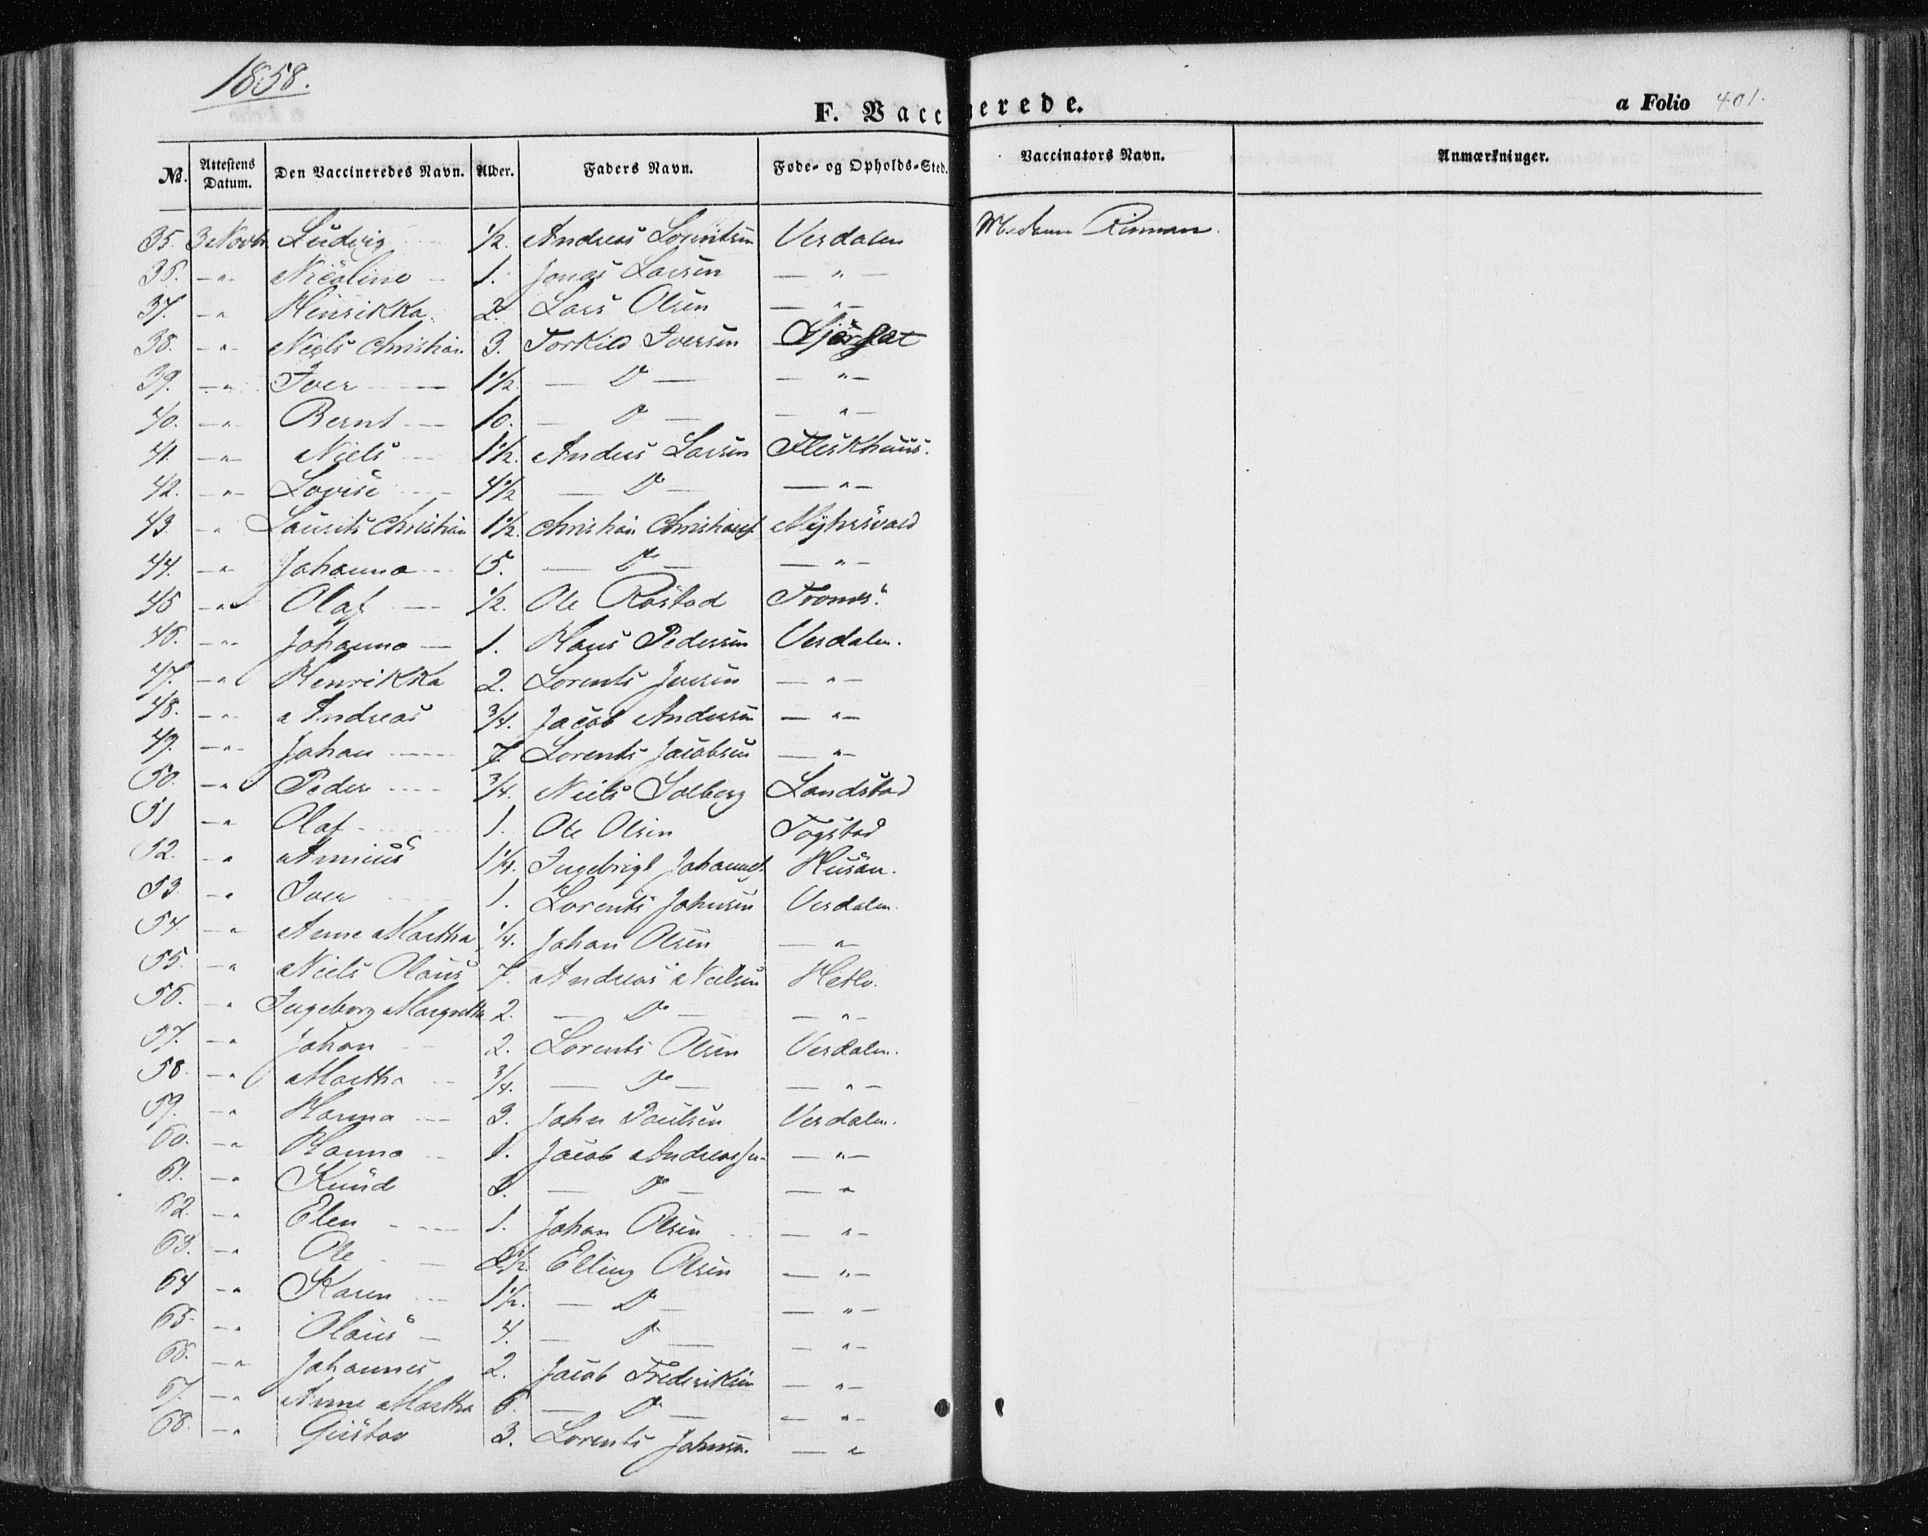 1858.
F. Vaccinerede.
a Folio 401.
No. Attestens Datum. Den Vaccineredes Navn. Alder. Faders Navn. Føde- og Opholds-Sted. Vaccinators Navn. Anmærkninger.
35. 3 Novbr Ludvig 1/2. Andreas Lorentsen Verdalen Rinnan.
36. — " — Nicoline — 1. Jonas Larsen — " —
37. — " Henrikka. 2. Lars Olsen — " —
38. — " — Niels Christian 3. Torkild Iversen
39. — " Iver — 1 1/2. — Do — — " —
40. — " — Bernt — 10. — Do — — " —
41. — " — Niels 1 1/2. Anders Larsen Fleskhuus.
42. — " — Lovise 4 1/2 — Do — — " —
43. " Laurits Christian 1 1/2. Christian Christians. Myhrsvald
44. — " Johanna 5. — Do — — " —
45 — " Olaf — 1/2. Ole Røstad Troms.
46. — " — Johanna — 1. Hans Pedersen Verdalen.
47. — " Henrikka 2. Lorents Jensen — " —
48. — " — Andreas 3/4. Jacob Andersen — " —
49. — " — Johan — 7. Lorents Jacobsen — " —
50. — " Peder 3/4. Niels Solberg Landstad
51 — " Olaf 1. Ole Olsen Togstad
52. — " 1 1/4. Ingebrigt Johannes. Husan.
53. — " Iver 1. Lorents Johnsen Verdalen.
54. — " Anne Martha 1/4. Johan Olsen — " —
55. — " Niels Olaus 7. Andreas Nielsen Hetlo.
56. — " Ingeborg Margretha 2. — Do — — " —
57. — " Johan 2. Lorents Olsen Verdalen.
58. — " Martha 3/4. — Do — — " —
59. — " Hanna 3. John Paulsen Verdalen.
60. — " Hanna 1. Jacob Andreassen — " —
61. — " Knud — Do — — "
62. — " Elen 1. Johan Olsen — " —
63. — " Ole Elling Olsen — " —
64 — " Karen 1 1/2. — Do — — " —
65. — " Olaus — 4. — Do — — " —
66. — " Johannes 2. Jacob Frederiksen — " —
67. — " Anne Martha 6. — Do — — " —
68. — " Gustav 3. Lorents Johnsen. — "